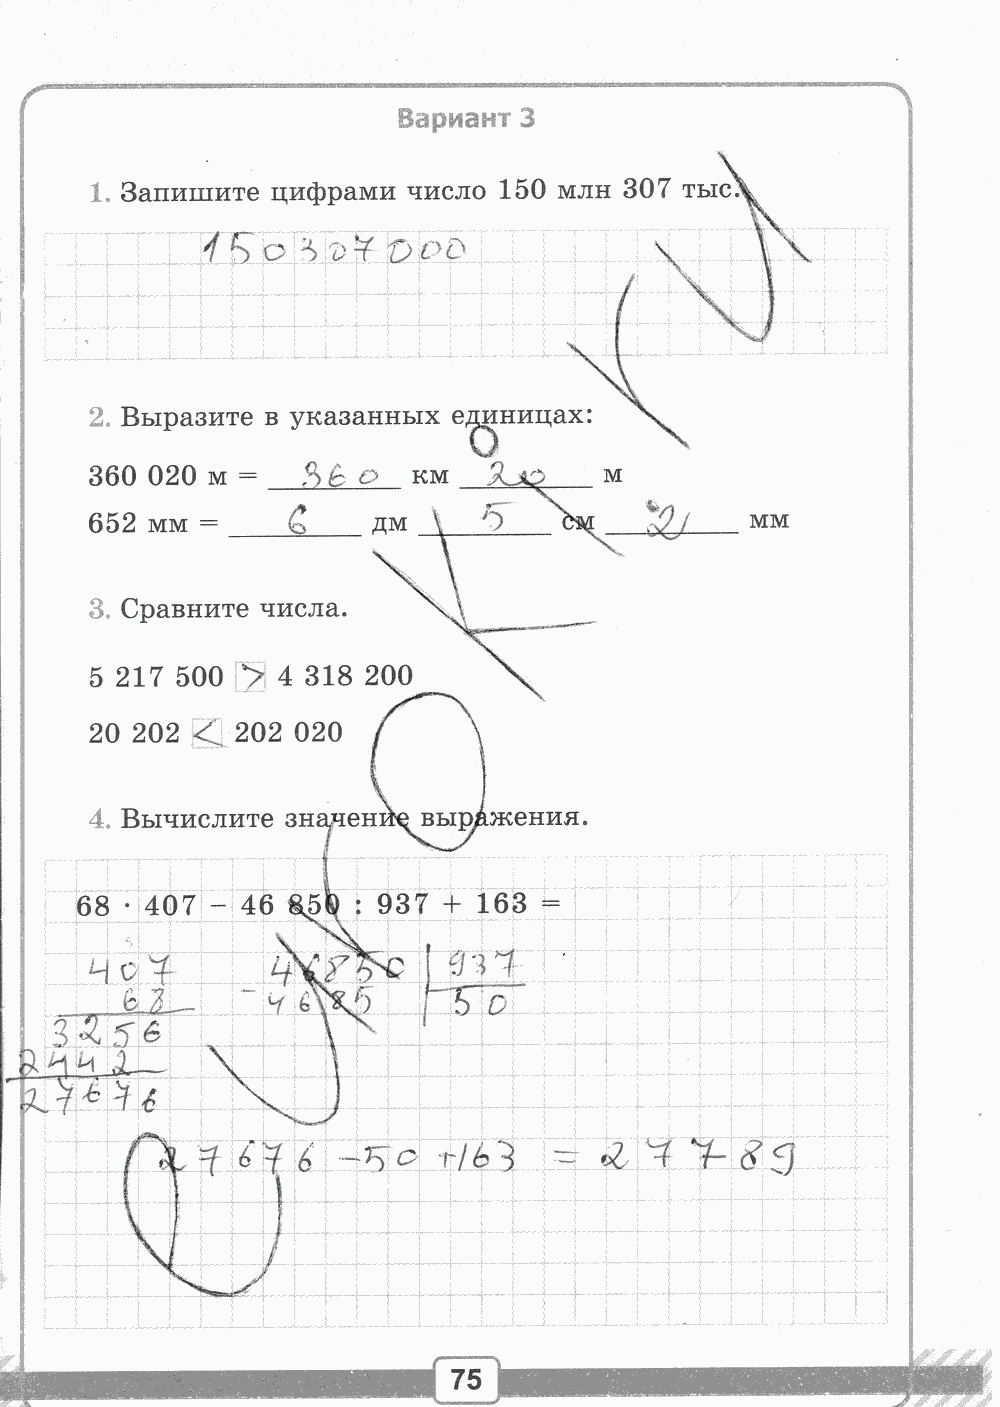 Вариант 3
1. Запишите цифрами число 150 млн 307 тыс.
150307000
2. Выразите в указанных единицах:
360 020 м = 360 км 20 м
652 мм = 6 дм 5 см 2 мм
3. Сравните числа.
5 217 500 > 4 318 200
20 202 < 202 020
4. Вычислите значение выражения.
68 · 407 – 46 850 : 937 + 163 =
407
68
3256
2442
27676
46850 937
- 4685 50
27676 - 50 + 163 = 27789
75